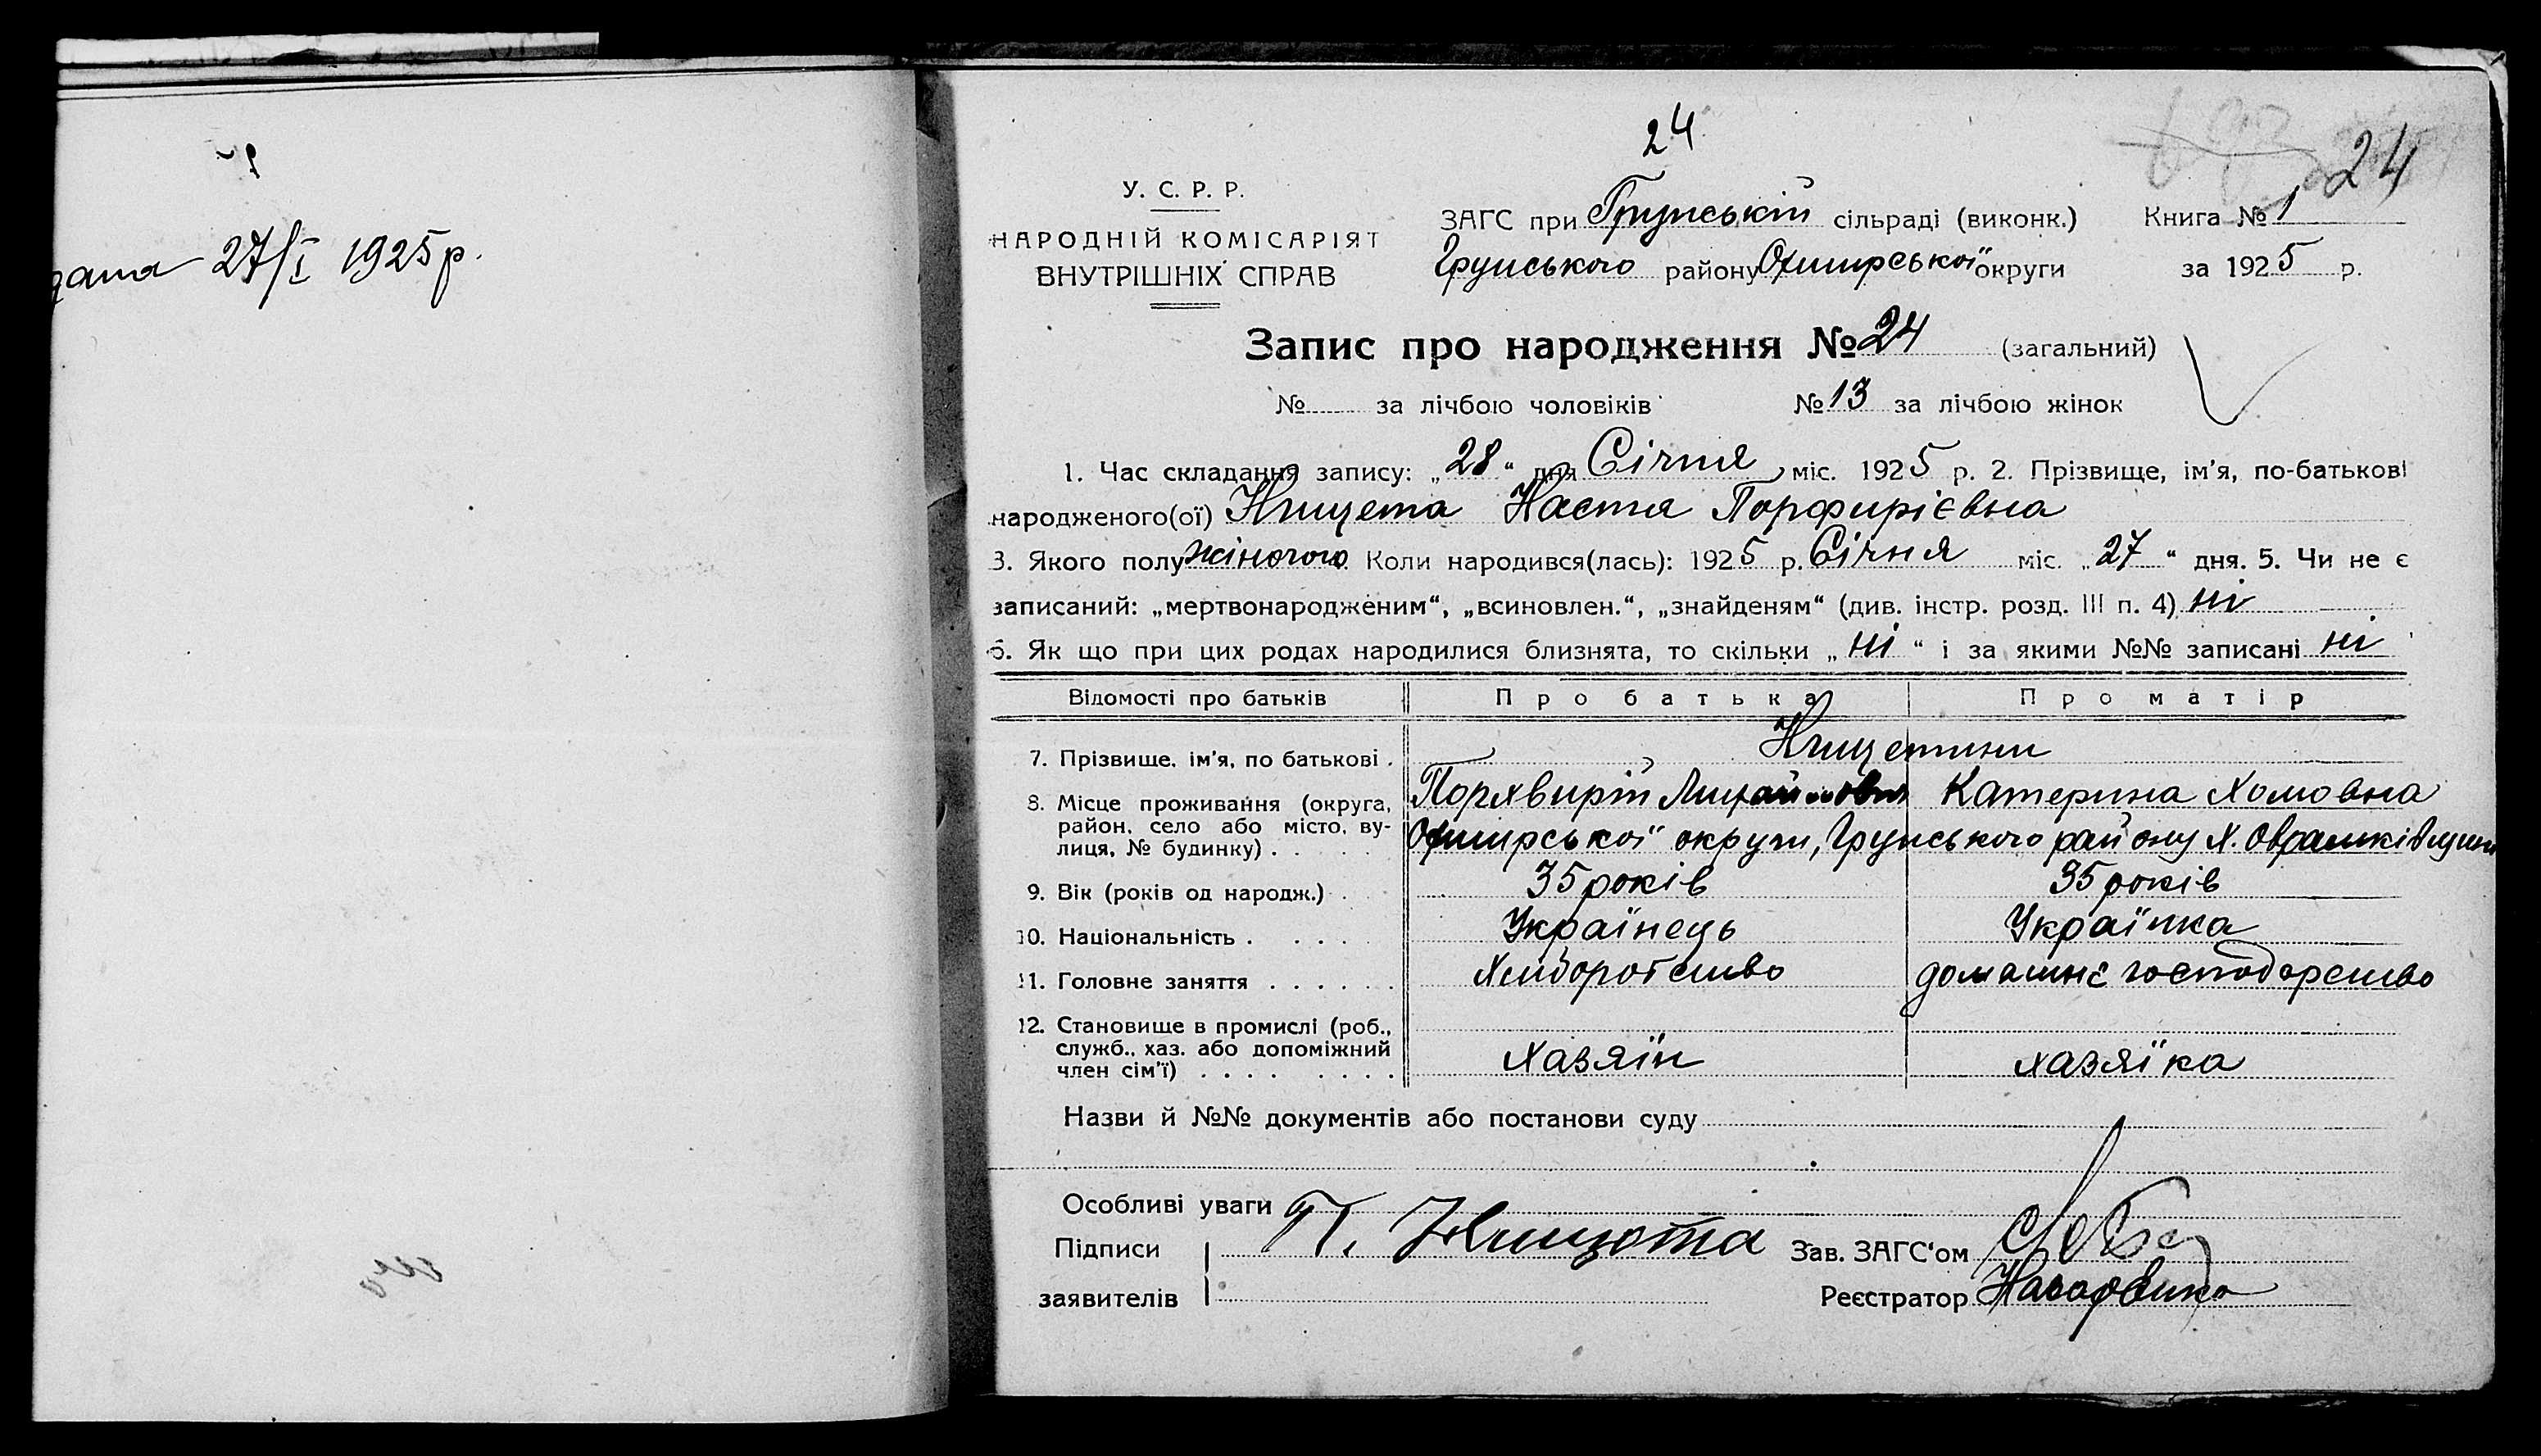 27/I 1925 р.
24
24
У. С. Р. Р.
НАРОДНІЙ КОМІСАРІЯТ
ВНУТРІШНІХ СПРАВ
ЗАГС при Грунській сільраді (виконк.) Книга № 1
Грунського району Охтирської округи за 1925 р.
Запис про народження № 24 (загальний)
№ за лічбою чоловіків № 13 за лічбою жінок
1. Час складання запису: „28“ дня Січня міс. 1925 р. 2. Прізвище, ім'я, по-батькові
народженого(ої) Нищета Настя Порфирієвна
3. Якого полу жіночого Коли народився(лась): 1925 р. Січня міс. „27“ дня. 5. Чи не є
записаний: „мертвонародженим“, „всиновлен.“, „знайденям“ (див. інстр. розд. III п. 4) ні
6. Як що при цих родах народилися близнята, то скільки „ні“ і за якими №№ записані ні
Відомості про батьків Про батька Про матір
7. Прізвище, ім'я, по батькові . Нищетини
Порхвирій Катерина Хомовна
8. Місце проживання (округа,
район, село або місто, ву-
лиця, № будинку) . . Охтирської округи, Грунського району х.
9. Вік (років од народж.) . 35 років 35 років
10. Національність . . . . Українець Українка
11. Головне заняття . . . . . . Хліборобство домашнє господарство
12. Становище в промислі (роб.,
служб., хаз. або допоміжний
член сім'ї) . . . . . . . . Хазяїн хазяїка
Назви й №№ документів або постанови суду
Особливі уваги
Підписи П. Нищота Зав. ЗАГС'ом
заявителів Реєстратор